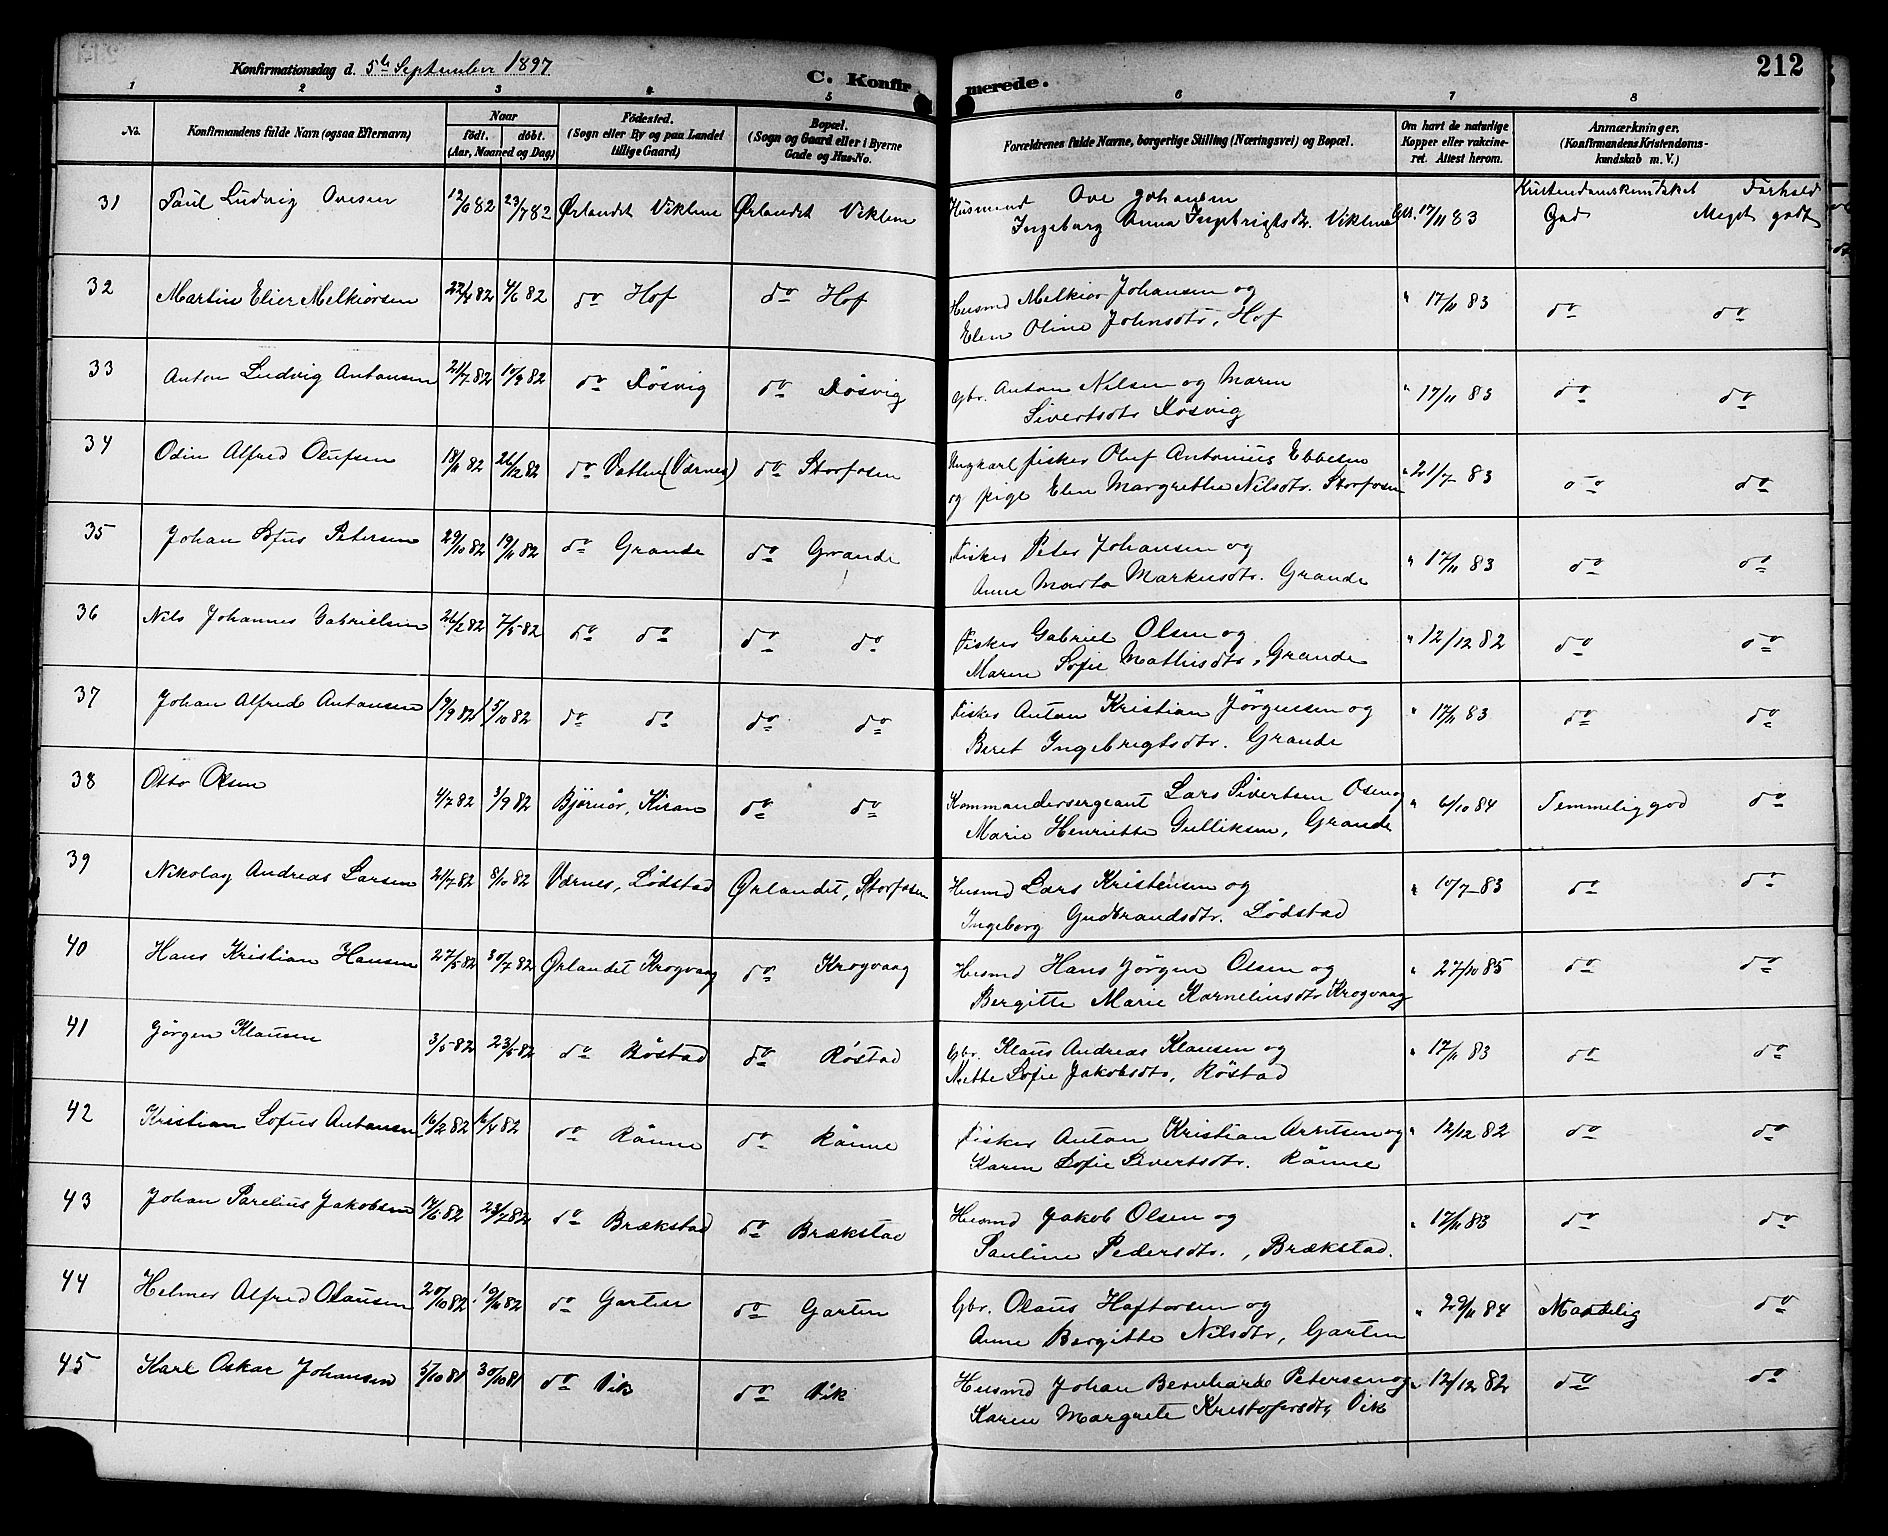 Konfirmationsdag d. 5te September 1897
C. Konfirmerede.
212
1 2 3 4 5 6 7 8
No. Konfirmandens fulde Navn (ogsaa Efternavn) Naar født. døbt. (Aar, Maaned og Dag) Fødested. (Sogn eller By og paa Landet tillige Gaard) Bopæl. (Sogn og Gaard eller i Byerne Gade og Hus-No. Forældrenes fulde Navne, borgerlige Stilling (Næringsvei) og Bopæl. Om havt de naturlige Kopper eller vakcineret. Attest herom. Anmærkninger. (Konfirmandens Kristendomskundskab m. V.)
Kristendomskundskab Forhold
31 Paul Ludvig Ovesen 12/6 82 23/7 82 Ørlandet Viklem Ørlandet Viklem Husmand Ove Johansen
Ingeborg Anna Ingebrigtsdtr. Viklem Att. 17/11 83 God Meget godt
32 Martin Elier Melkiorsen 22/4 82 4/6 82 do Hof do Hof Husmd Melkior Johansen og
Elen Oline Johnsdtr, Hof " 17/11 83 do do
33 Anton Ludvig Antonsen 21/7 82 10/9 82 do Døsvig do Døsvig Gbr. Anton Nilsen og Maren
Sivertsdtr Døsvig " 17/11 83 do do
34 Odin Alfred Olufsen 18/11 82 26/12 82 do Vatten (Værnes) do Storfosen Ungkarl fisker Oluf Antonius Ebbesen
og pige Elen Margrethe Nilsdtr. Storfosen " 21/7 83 do do
35 Johan Sofus Petersen 29/10 82 19/11 82 do Grande do Grande Fisker Peter Johansen og
Anne Marta Markusdtr. Grande " 17/11 83 do do
36 Nils Johannes Gabrielsen 26/2 82 7/5 82 do do do do Fisker Gabriel Olsen og
Maren Sofie Mathisdtr, Grande " 12/12 82 do do
37 Johan Alfred Antonsen 19/9 82 15/10 82 do do do do Fisker Anton Kristian Jørgensen og
Beret Ingebrigtsdtr. Grande " 17/11 83 do do
38 Otto Olsen 4/7 82 3/9 82 Bjørnør, Kiran do do Kommandersergeant Lars Sivertsen Osen og
Marie Henriette Gulliksen, Grande " 6/10 84 Temmelig god do
39 Nikolay Andreas Larsen 21/7 82 8/10 82 Værnes, Lødstad Ørlandet, Storfosen Husmd Lars Kristensen og
Ingeborg Gudbrandsdtr. Lødstad " 10/7 83 do do
40 Hans Kristian Hansen 27/5 82 30/7 82 Ørlandet Krogvaag do Krogvaag Husmd Hans Jørgen Olsen og
Bergitte Marie Kornelinsdtr Krogvaag " 27/10 85 do do
41 Jørgen Klausen 3/5 82 23/5 82 do Røstad do Røstad Gbr. Klaus Andreas Klausen og
Mette Sofie Jakobsdtr, Røstad " 17/11 83 do do
42 Kristian Sofus Antonsen 16/2 82 16/4 82 do Rønne do Rønne Fisker Anton Kristian Arntsen og
Karen Sofie Sivertsdtr. Rønne " 12/12 82 do do
43 Johan Parelius Jakobsen 17/6 82 23/7 82 do Brækstad do Brækstad Husmd Jakob Olsen og
Pauline Pedersdtr., Brækstad. " 17/11 83 do do
44 Helmer Alfred Olausen 20/10 82 19/11 82 do Garten do Garten Gbr. Olaus Haftorsen og
Anne Bergitte Nilsdtr, Garten " 29/11 84 Maadelig do
45 Karl Oskar Johansen 5/10 81 30/10 81 do Vik do Vik Husmd Johan Bernhard Petersen og
Karen Margrete Kristofersdtr, Vik " 12/12 82 do do